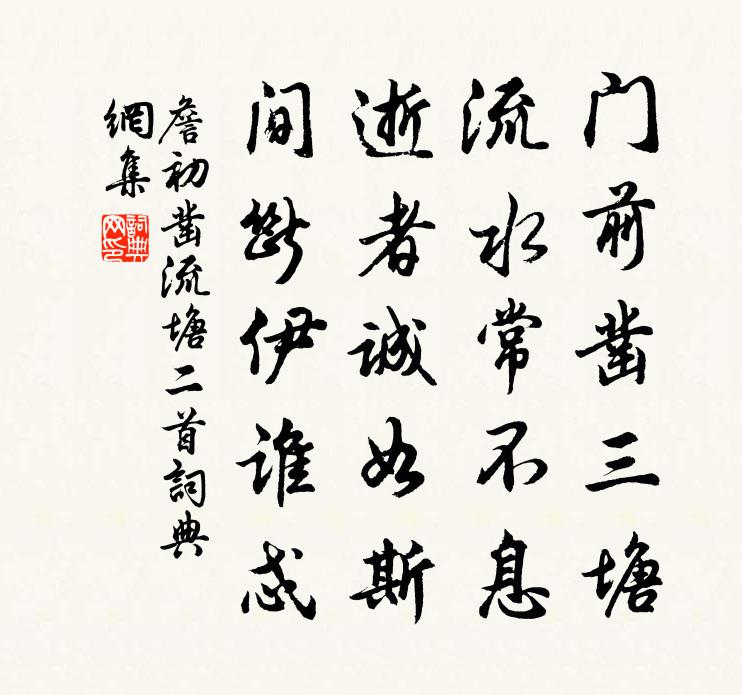 门前凿三塘
流水常不息
逝者誠如斯
间斷伊誰忒
詹初凿流塘二首詞典
網集
詞典
网印